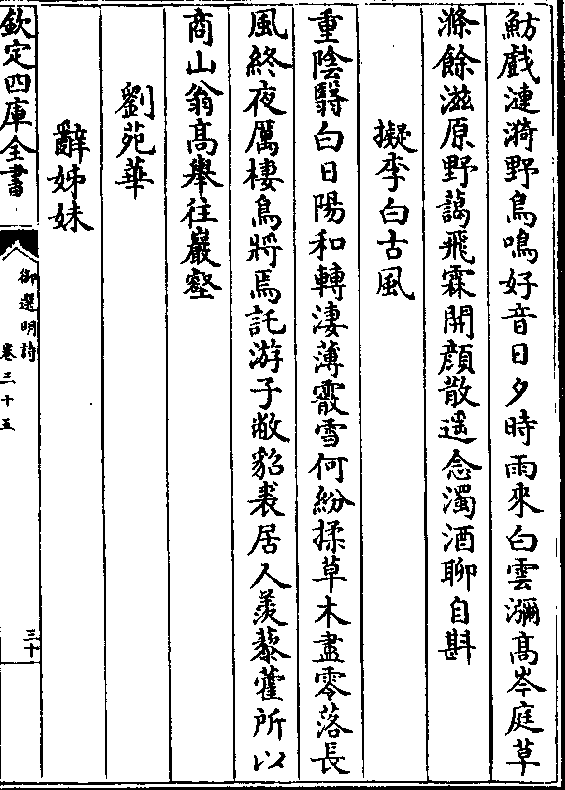 魴戲漣漪野鳥鳴好音日夕時雨來白雲瀰髙岑庭草
滌餘滋原野藹飛霖開顔散遥念濁酒聊自斟
擬李白古風
重陰翳白日陽和轉淒薄霰雪何紛揉草木盡零落長
風終夜厲棲鳥將焉託游子敝貂裘居人羨藜藿所以
商山翁髙舉往巖壑
劉苑華
辭姊妹
欽定四庫全書
御選明詩
卷三十五
三十